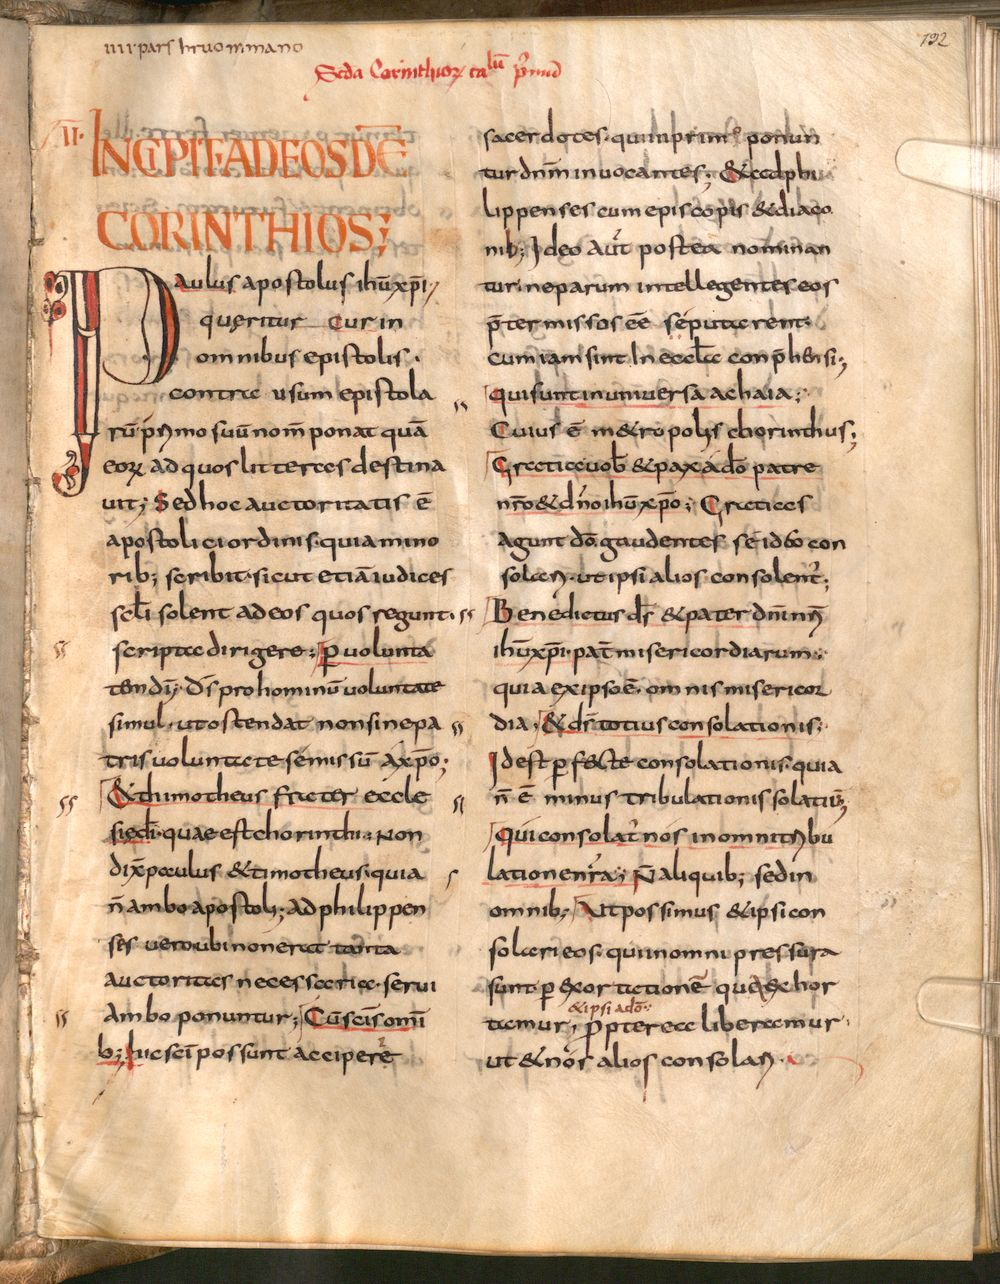 IIII pars hruommano
192
Scda Corinthiorꝝ ca lū p̄mū
II·
INCIPIT· AD EOSDĒ
CORINTHIOS;
Paulus apostolus ihū xp̄i·
queritur Cur in
omnibus epistolis·
contra usum epistola
rū p̄rimo suū nom̄ ponat quā
eorꝝ ad quos litteras destina
uit; Sed hoc auctoritatis ē
apostolici ordinis· quia mino
rib; scribit· sicut etiā iudices
scl̄i solent ad eos quos regunt·
scripta dirigere; ꝑ uolunta
tem dī; D̄s pro hominū uoluntate
simul· ut ostendat non sine pa
tris uoluntate se missū A xp̄o;
& thimotheus frater eccle
siae dī· quae est chorinthi· Non
dix̄ paulus & timotheus· quia
n̄ ambo apostoli; Ad philippen
ses uero ubi non erat tanta
auctoritas necessaria· serui
Ambo ponuntur; Cū sc̄is om̄i
b; hic sc̄i possunt accipere
sacerdotes· qui inprimis ponun
tur dn̄m inuocantes; & ad phi
lippenses cum episcopis & diaco
nib; Ideo aut̄ postea nominan
tur· ne parum intellegentes eos
p̄termissos eē se putarent·
cum iam sint In eccl̄a conp̄hensi;
qui sunt in uniuersa achaia;
Cuius ē metropolis chorinthus;
Gratia uob̄ & pax a dō patre
nr̄o & dn̄o ihū xp̄o; Gratias
agunt dō gaudentes se ideo con
solari· ut ipsi alios consolent̄;
Benedictus ds̄ & pater dn̄i nr̄i
ihū xp̄i· pat̄ misericordiarum·
quia ex ipso ē· omnis misericor
dia; & ds̄ totius consolationis;
Id est ꝑfecte consolationis· quia
n̄ ē minus tribulationis solatiū;
Qui consolat̄ nos in omni tribu
latione nr̄a; N̄ aliquib; sed in
omnib; Ut possimus & ipsi con
solari eos· qui in omni pressura
sunt· ꝑ exortationē qua exhor
& ipsi a dō·
tamur; ꝓpterea liberamur·
ut & nos alios consolari·